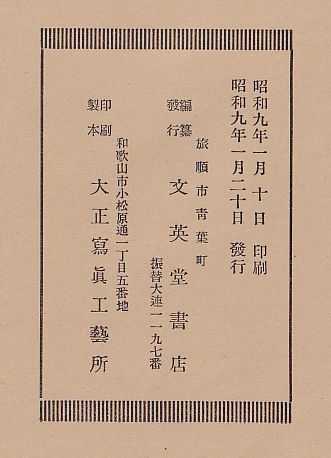 昭和九年一月十日 印刷
昭和九年一月二十日 發行
旅順市靑葉町
編纂
發行
文英堂書店
振替大連一一九七番
印刷
製本
和歌山市小松原通一丁目五番地
大正寫眞工藝所